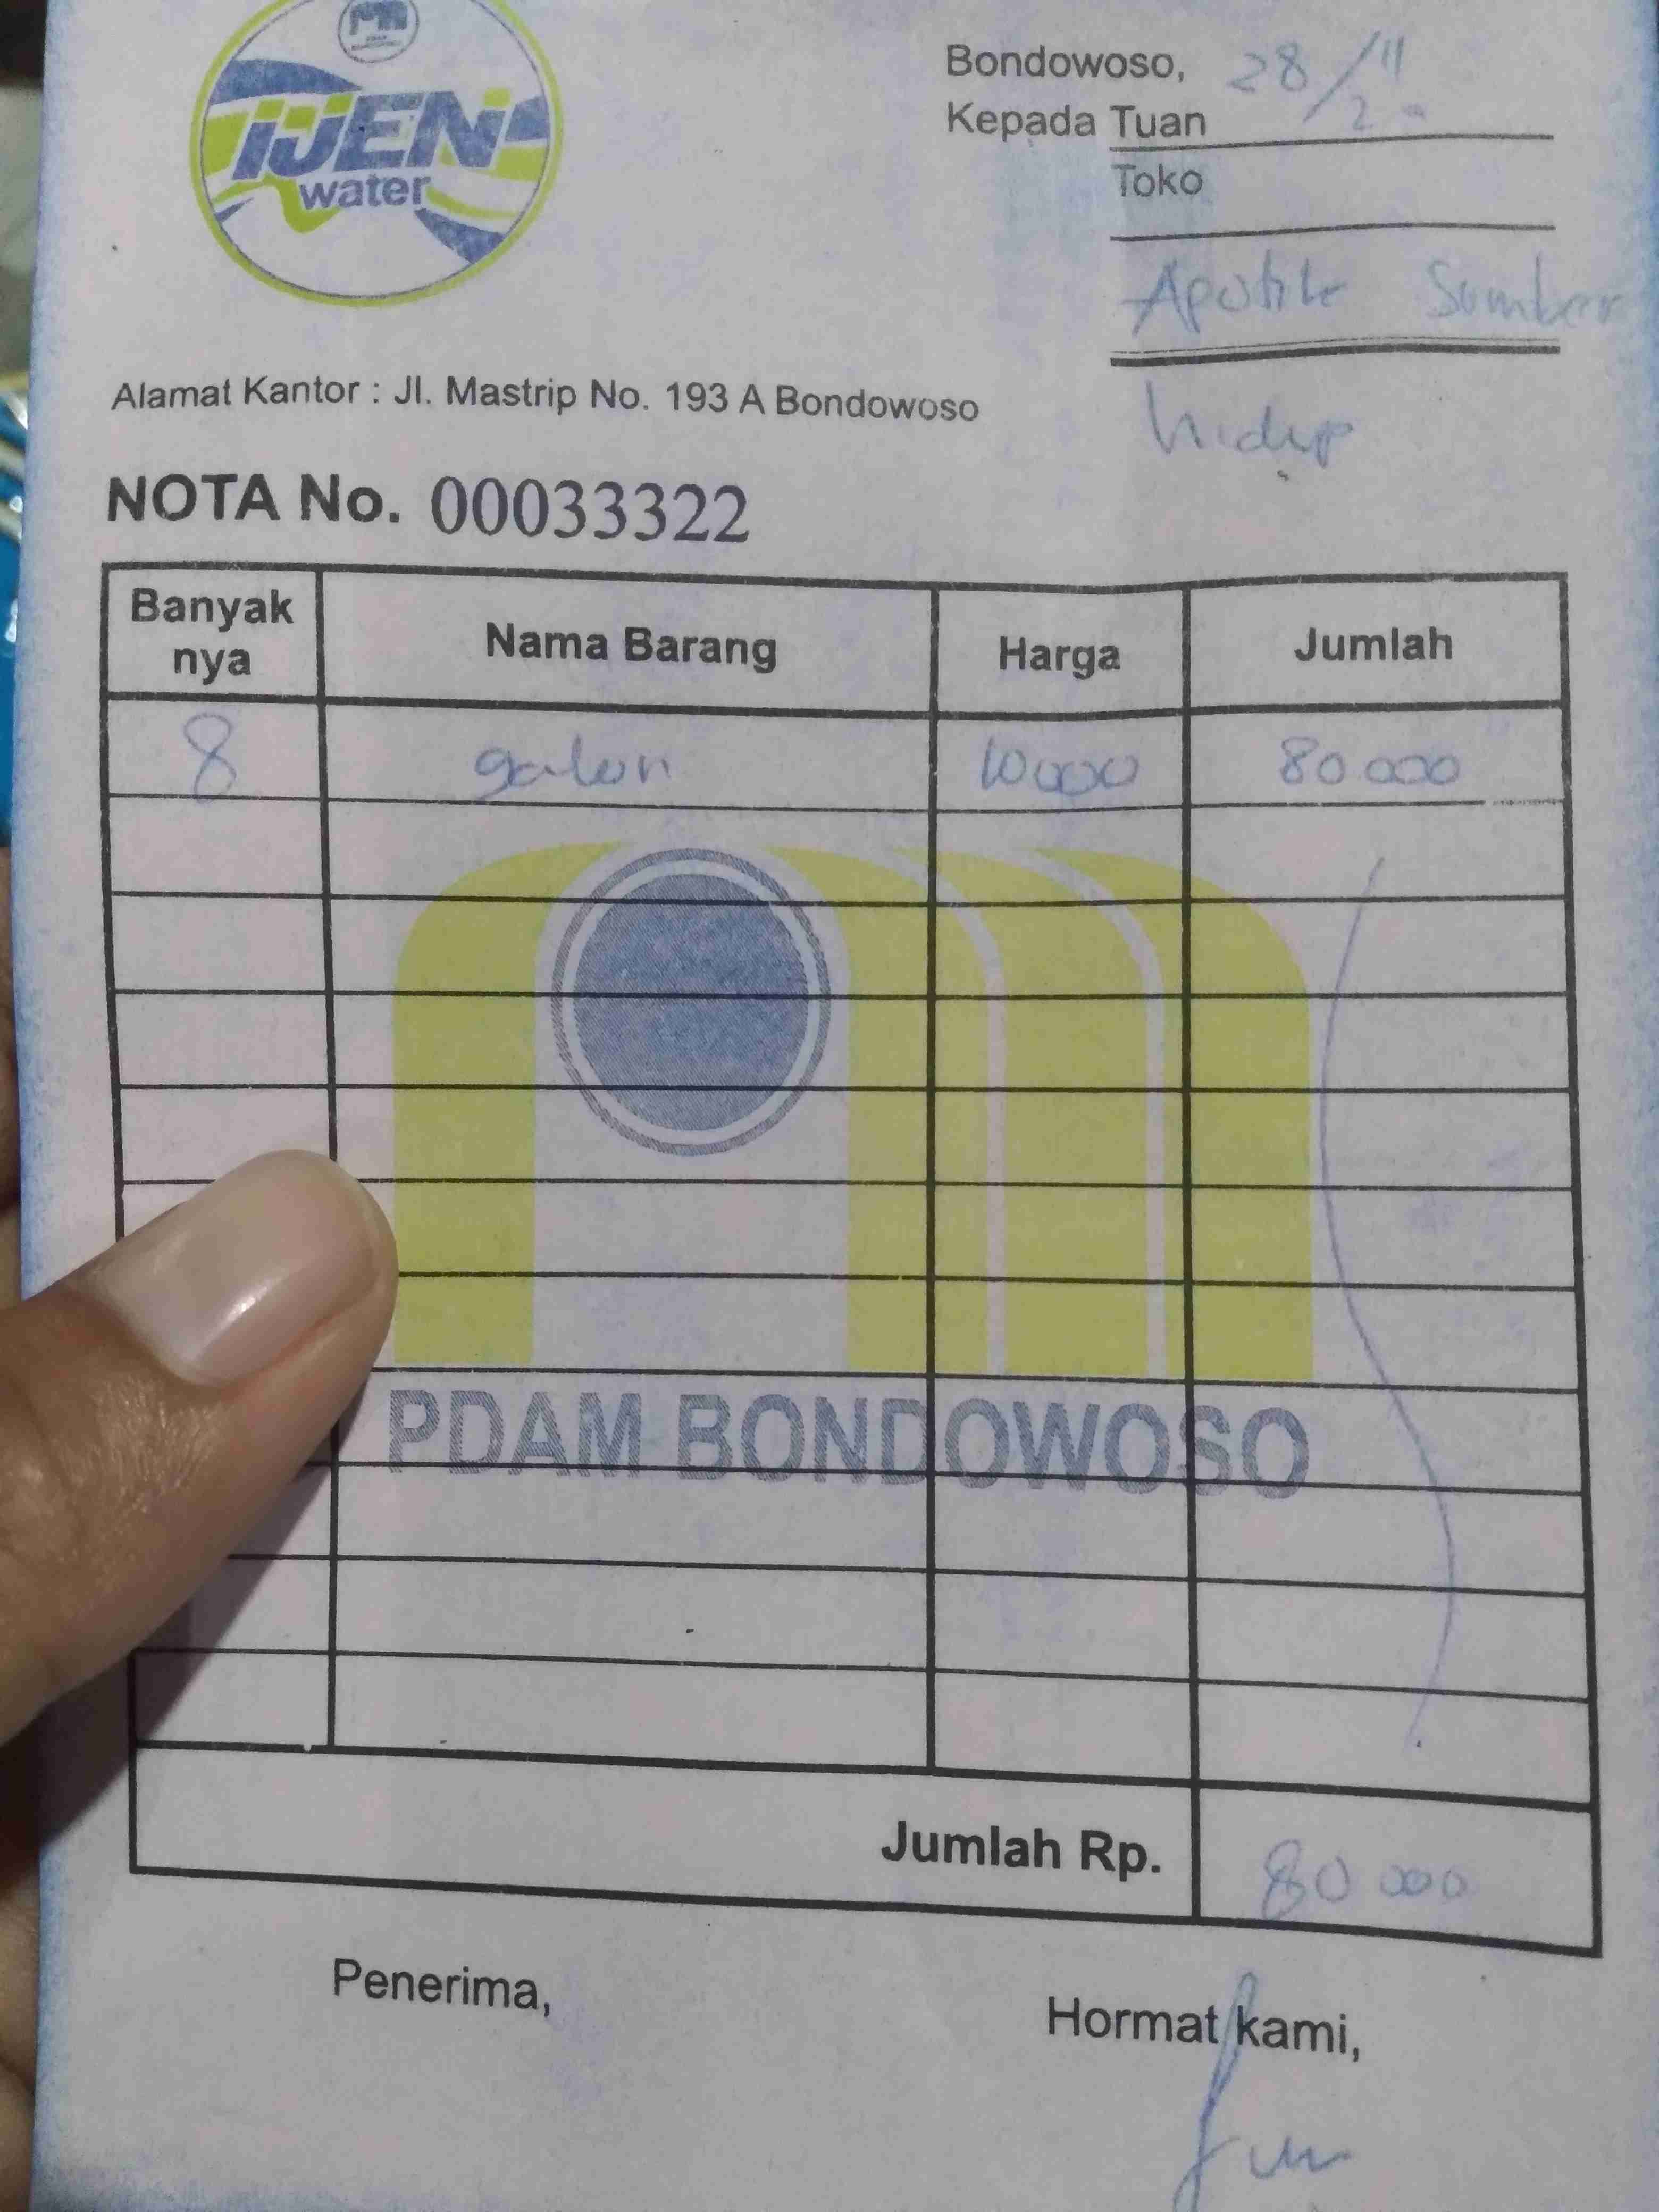 IJEN
water
Bondowoso, 28/11
Kepada Tuan
Toko
Apotik Sumber
hidup
Alamat Kantor : Jl. Mastrip No. 193 A Bondowoso
NOTA No. 00033322
Banyak nya Nama Barang Harga Jumlah
8 galon 10000 80.000
PDAM BONDOWOSO
Jumlah Rp. 80 000
Penerima,
Hormat kami,